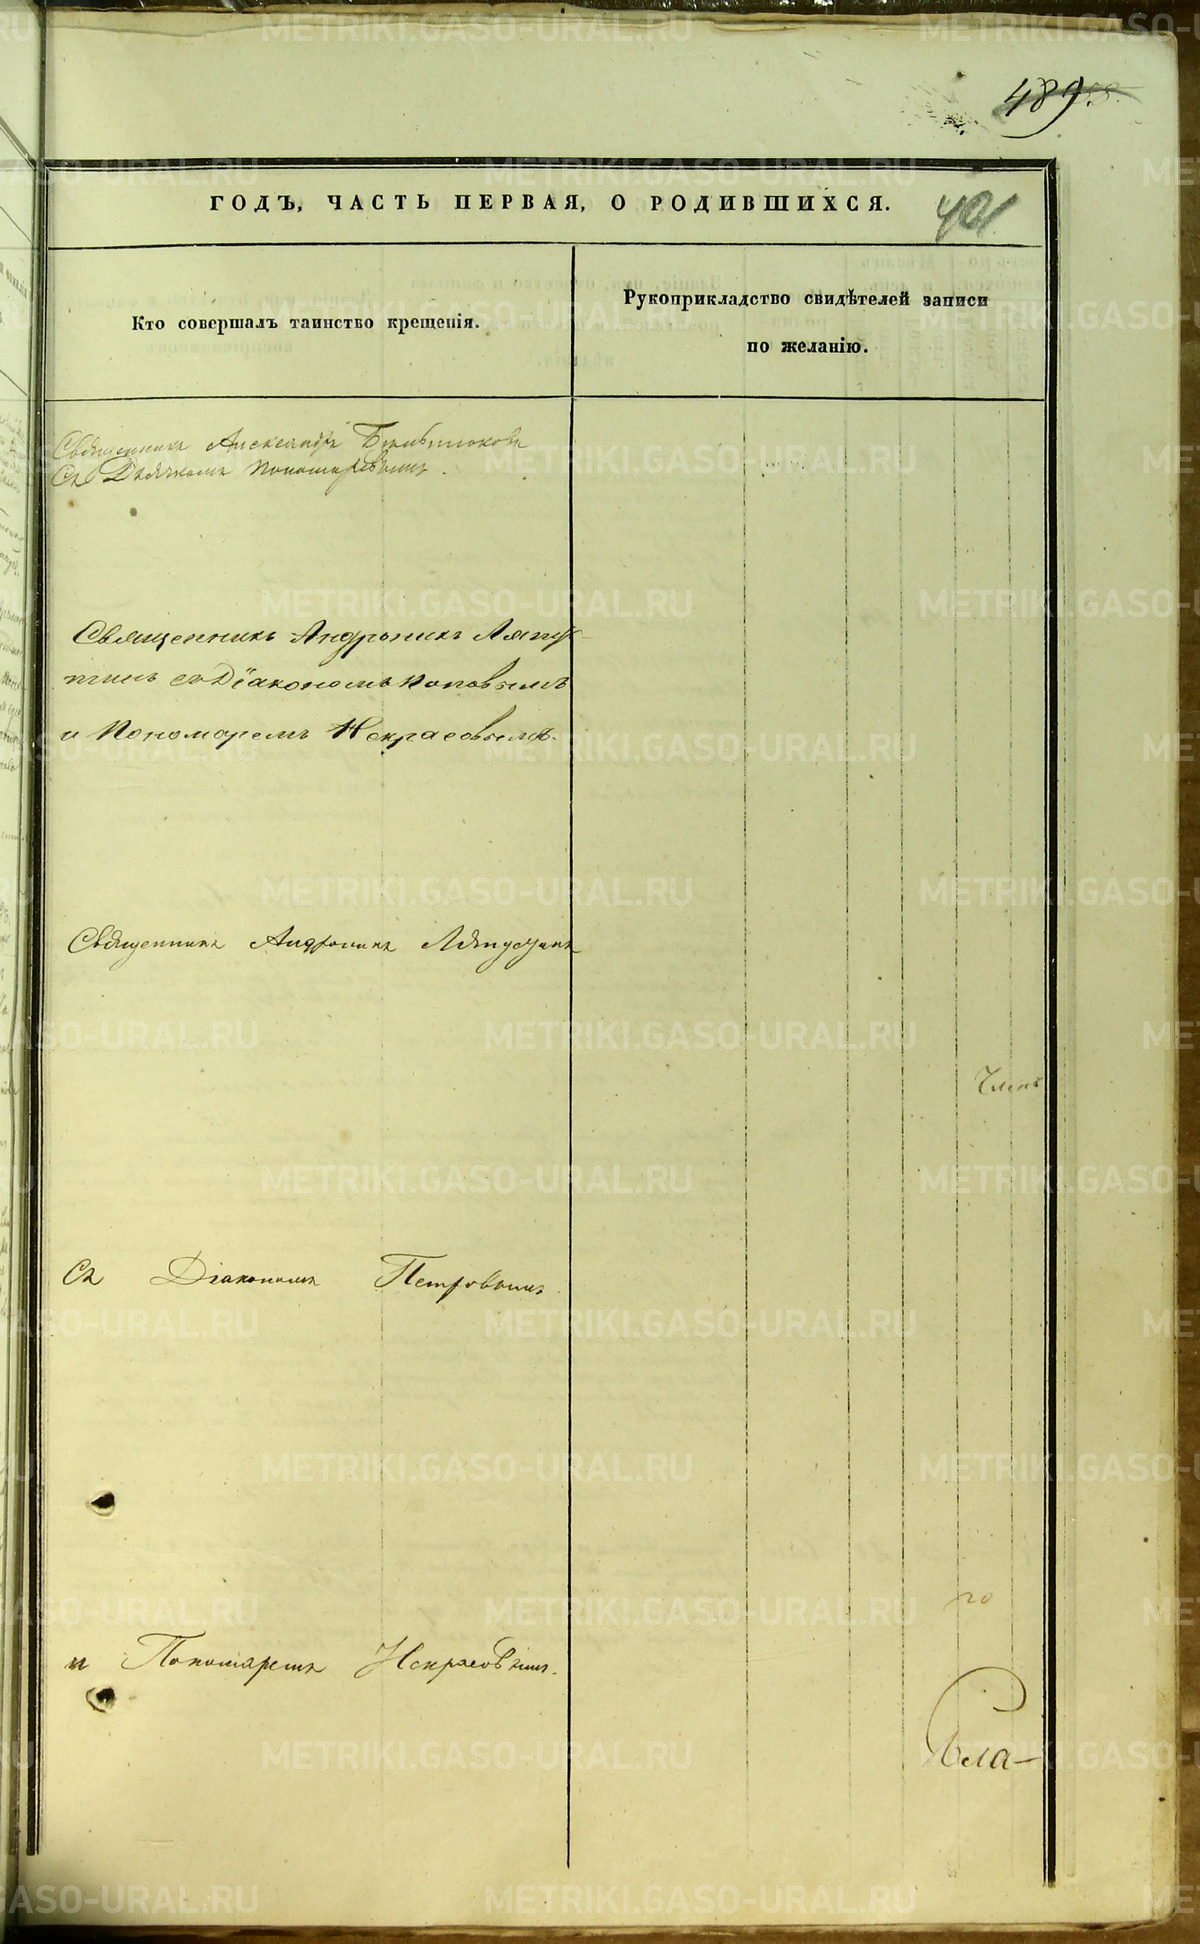 489.
ГОДЪ, ЧАСТЬ ПЕРВАЯ, О РОДИВШИХСЯ.
401
Кто совершалъ таинство крещенія.
Рукоприкладство свидѣтелей записи
по желанію.
Священникъ Александръ
Съ Дьячкомъ Пономаревымъ.
Священникъ Андроникъ Ляпу-
стинъ съ Діакономъ Поповымъ
и Пономаремъ Некрасовымъ.
Священникъ Андроникъ Ляпустинъ
Членъ
Съ Діакономъ Петровымъ
го
и Пономаремъ Некрасовымъ.
Бла-
METRIKI.GASO-URAL.RU